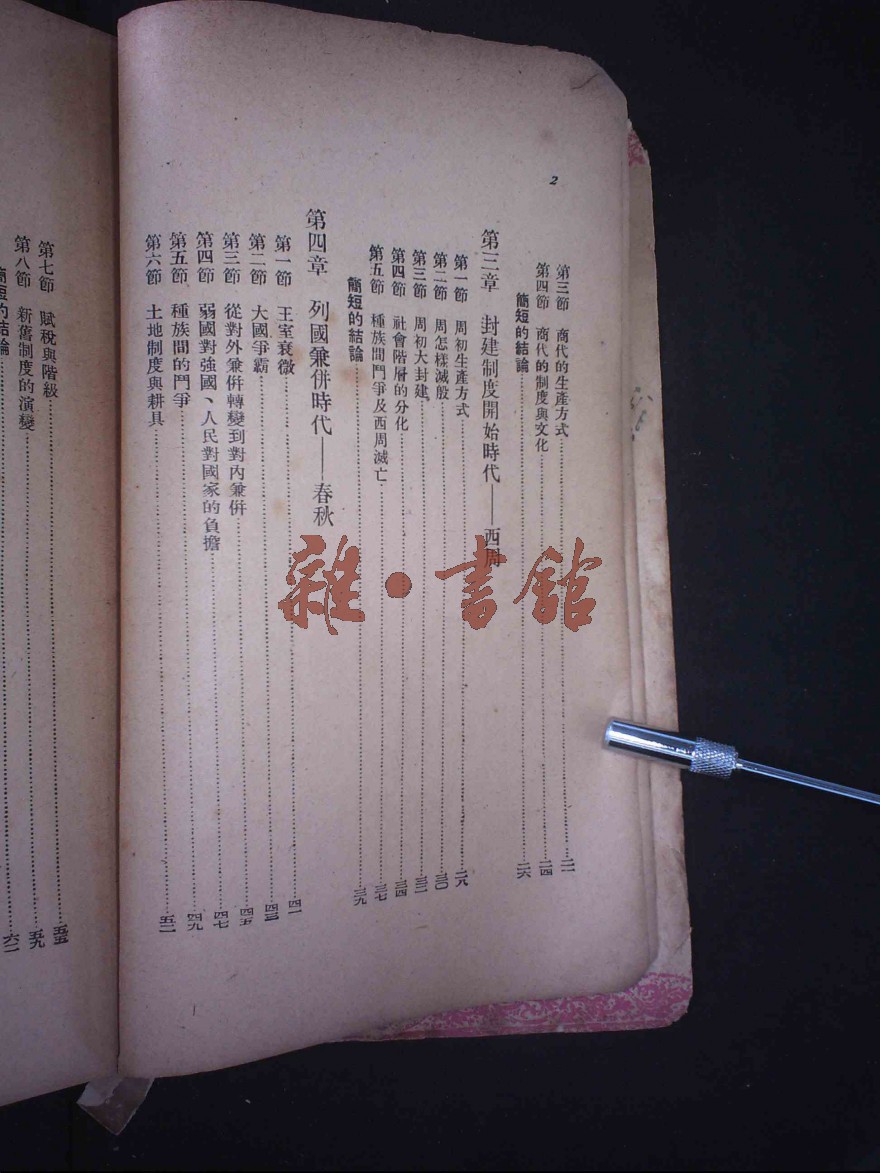 2
第三節 商代的生產方式……二一
第四節 商代的制度與文化……二四
簡短的結論……二六
第三章 封建制度開始時代——西周
第一節 周初生產方式……二八
第二節 周怎樣滅殷……三〇
第三節 周初大封建……三二
第四節 社會階層的分化……三四
第五節 種族間鬥爭及西周滅亡……三七
簡短的結論……三九
第四章 列國兼併時代——春秋
第一節 王室衰微……四一
第二節 大國爭霸……四三
第三節 從對外兼併轉變到對內兼併……四五
第四節 弱國對強國、人民對國家的負擔……四七
第五節 種族間的鬥爭……四九
第六節 土地制度與耕具……五二
第七節 賦稅與階級……五五
第八節 新舊制度的演變……五九
簡短的結論……六二
雜·書館